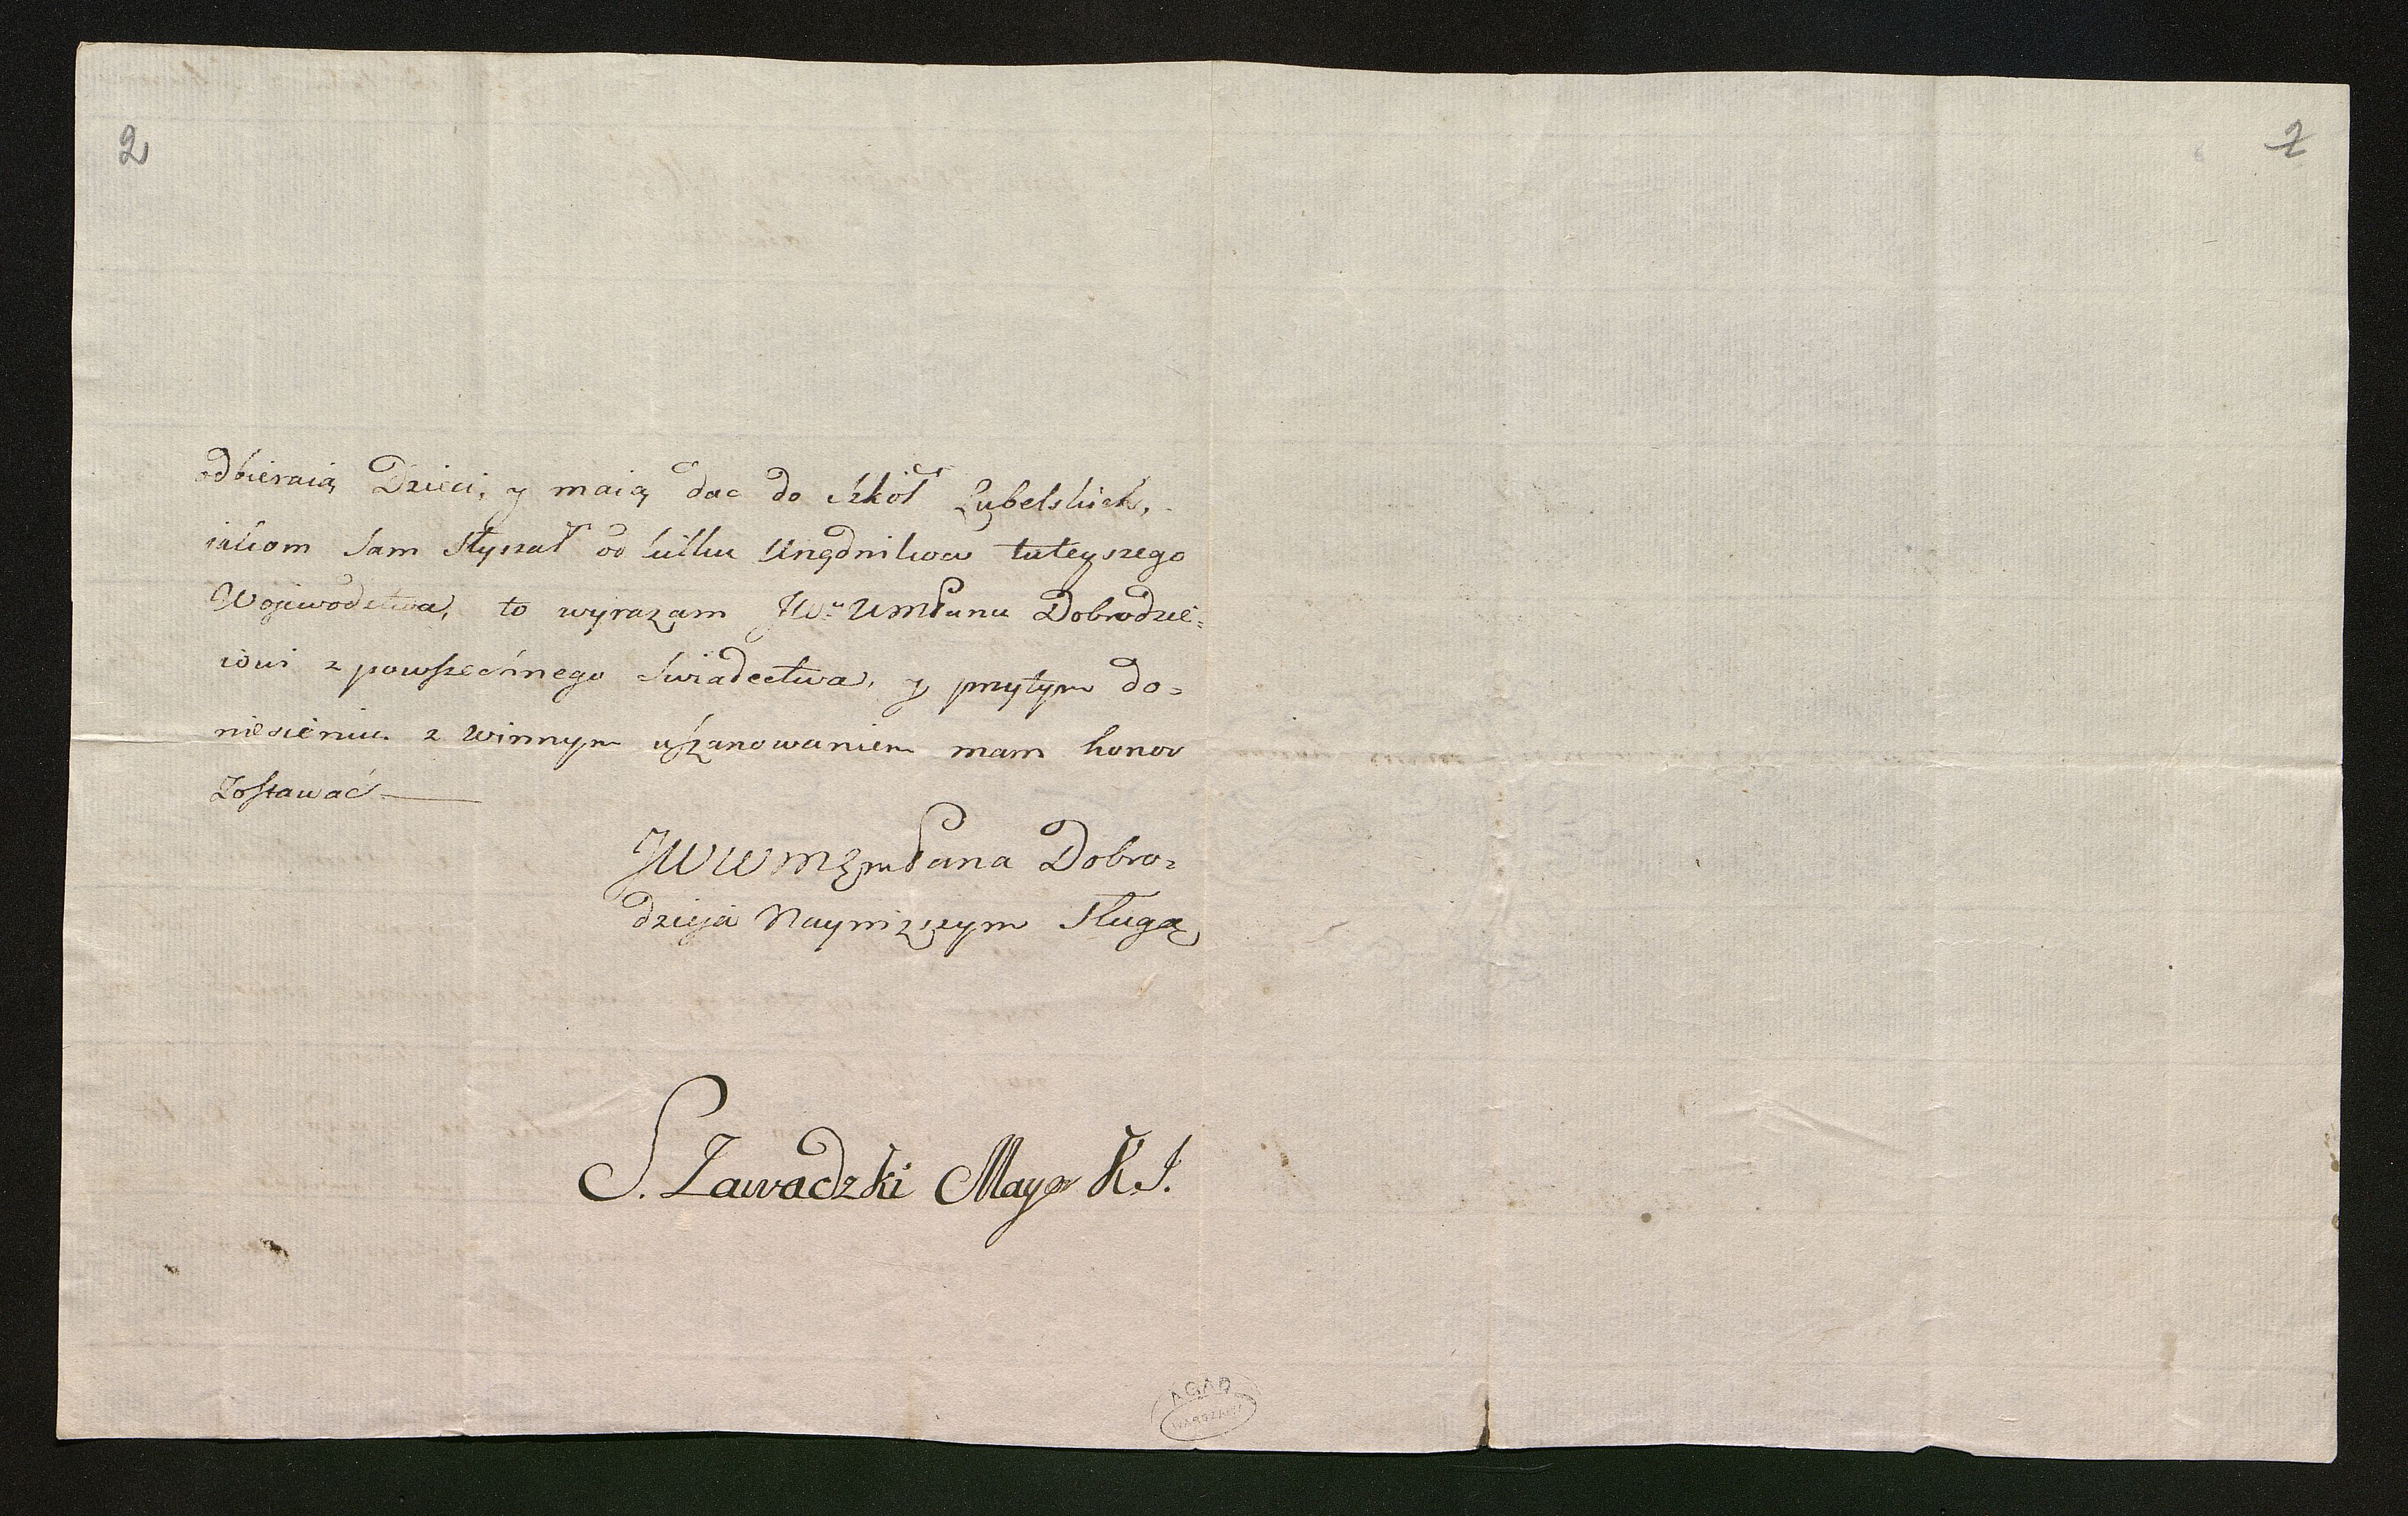 2
2
odbieraią Dzieci, y maią dac do szkół Lubelskich,
iakom sam słyszał od kilku Urzędnikow tuteyszego
Wojewodztwa, to wyrazam JWu WMPanu Dobrodzie=
iowi z powszechnego swiadectwa, y przytym do=
niesieniu z winnym uszanowaniem mam honor
zostawać
JWWMPana Dobro=
dzieja Nayniższym sługą
S. Zawadzki Mayor K.J.
AGAD
WARSZAWA